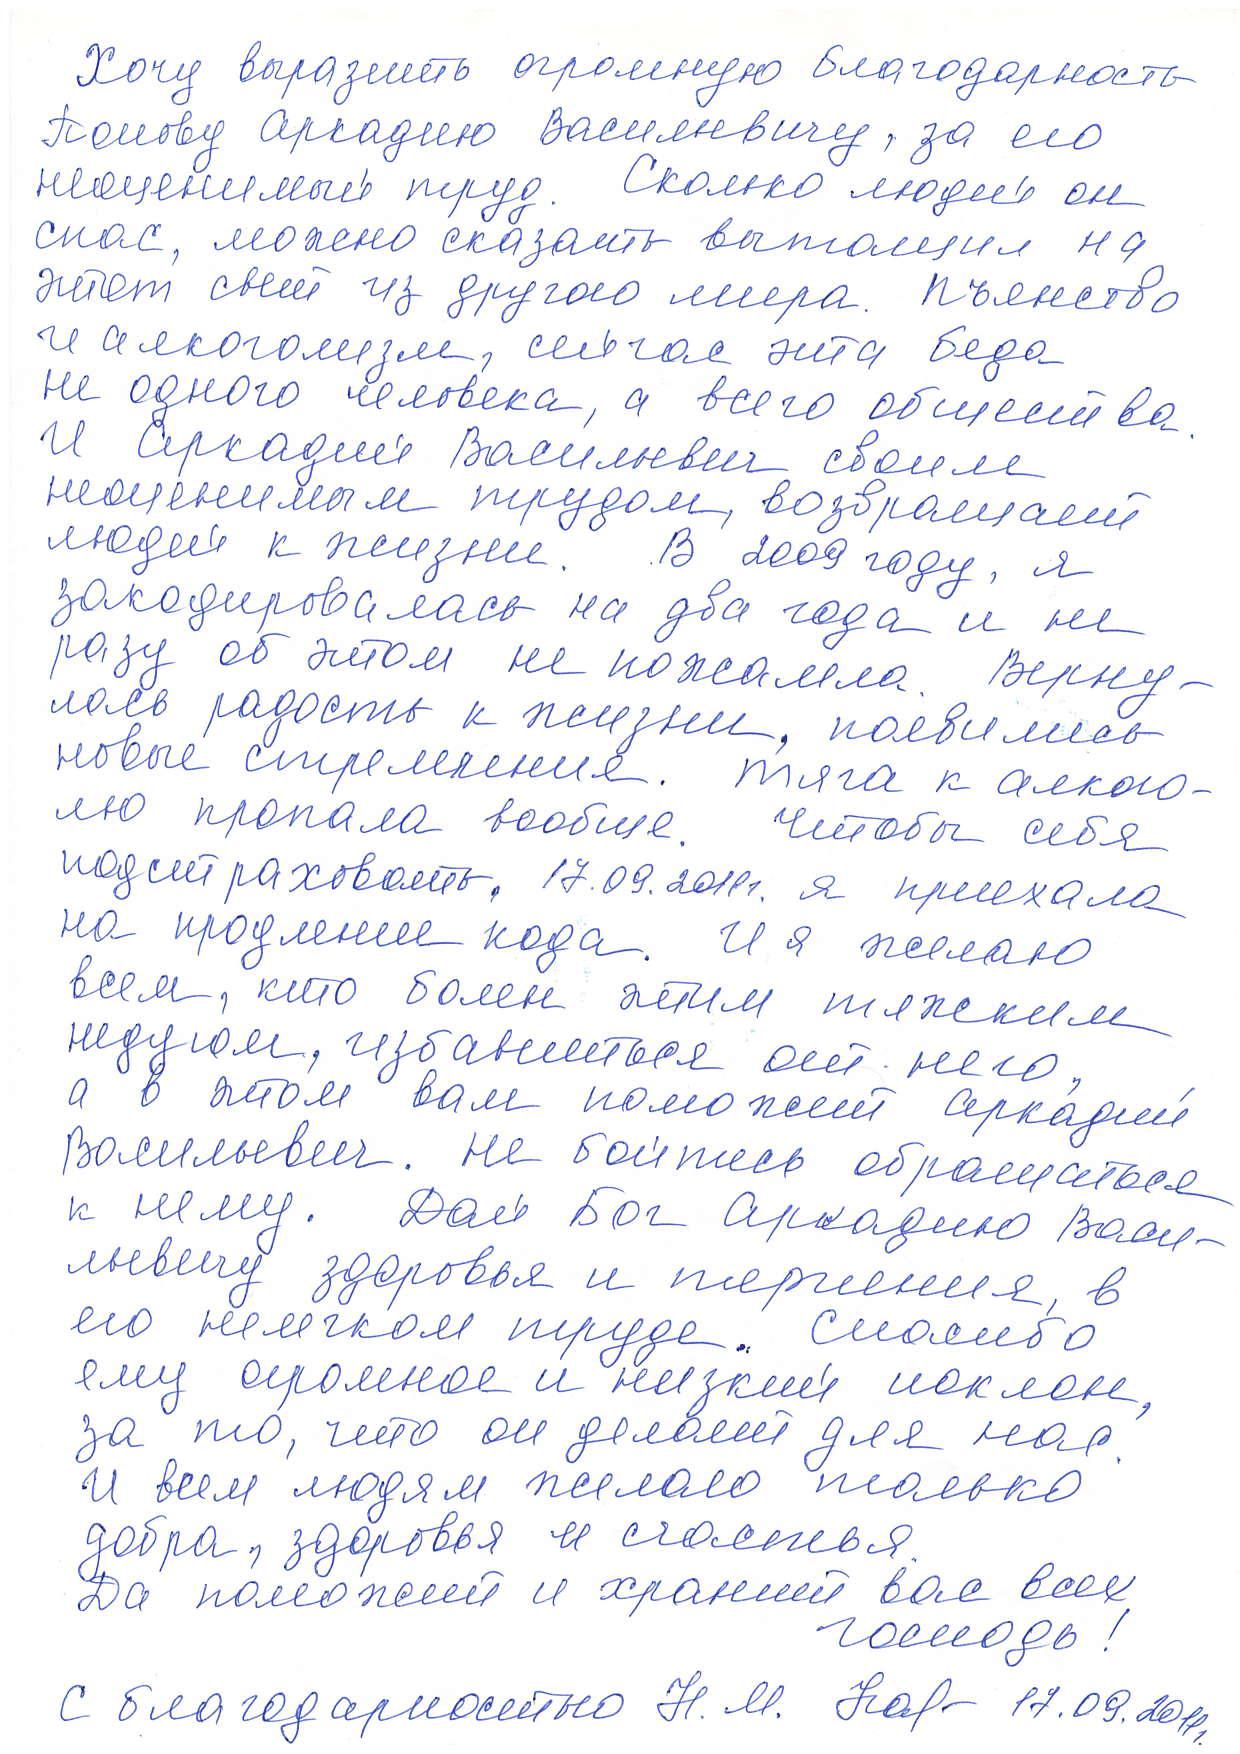 Хочу выразить огромную благодарность
Попову Аркадию Васильевичу, за его
неоценимый труд. Сколько людей он
спас, можно сказать вытащил на
этот свет из другого мира. Пъянство
и алкоголизм, сейчас эта беда
не одного человека, а всего общества.
И Аркадий Васильевич своим
неоценимым трудом, возвращает
людей к жизни. В 2009 году, я
закодировалась на два года и не
разу об этом не пожалела. Верну-
лась радость к жизни, появились
новые стремления. Тяга к алкого-
лю пропала вообще. Чтобы себя
подстраховать, 17.09.2011г. я приехала
на продление кода. И я желаю
всем, кто болен этим тяжким
недугом, избавиться от него,
а в этом вам поможет Аркадий
Васильевич. Не бойтесь обращаться
к нему. Дай Бог Аркадию Васи-
льевичу здоровья и терпения, в
его нелегком труде. Спасибо
ему огромное и низкий поклон,
за то, что он делает для нас.
И всем людям желаю только
добра, здоровья и счастья.
Да поможет и хранит вас всех
господь!
С благодарностью Н.М. 17.09.2011г.